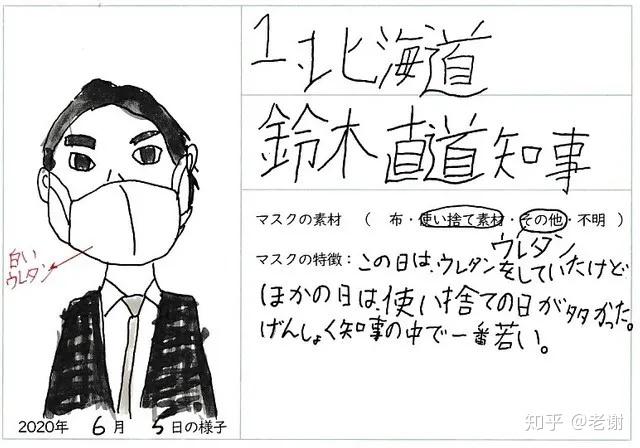 1.北海道
鈴木直道知事
マスクの素材 （ 布・使い捨て素材・その他・不明 ）
ウレタン
マスクの特徴：この日は、ウレタンをしていたけど
ほかの日は、使い捨ての日が多かった。
げんしょく知事の中で一番若い。
白い
ウレタン
2020年 6月 5日の様子
知乎 @老谢